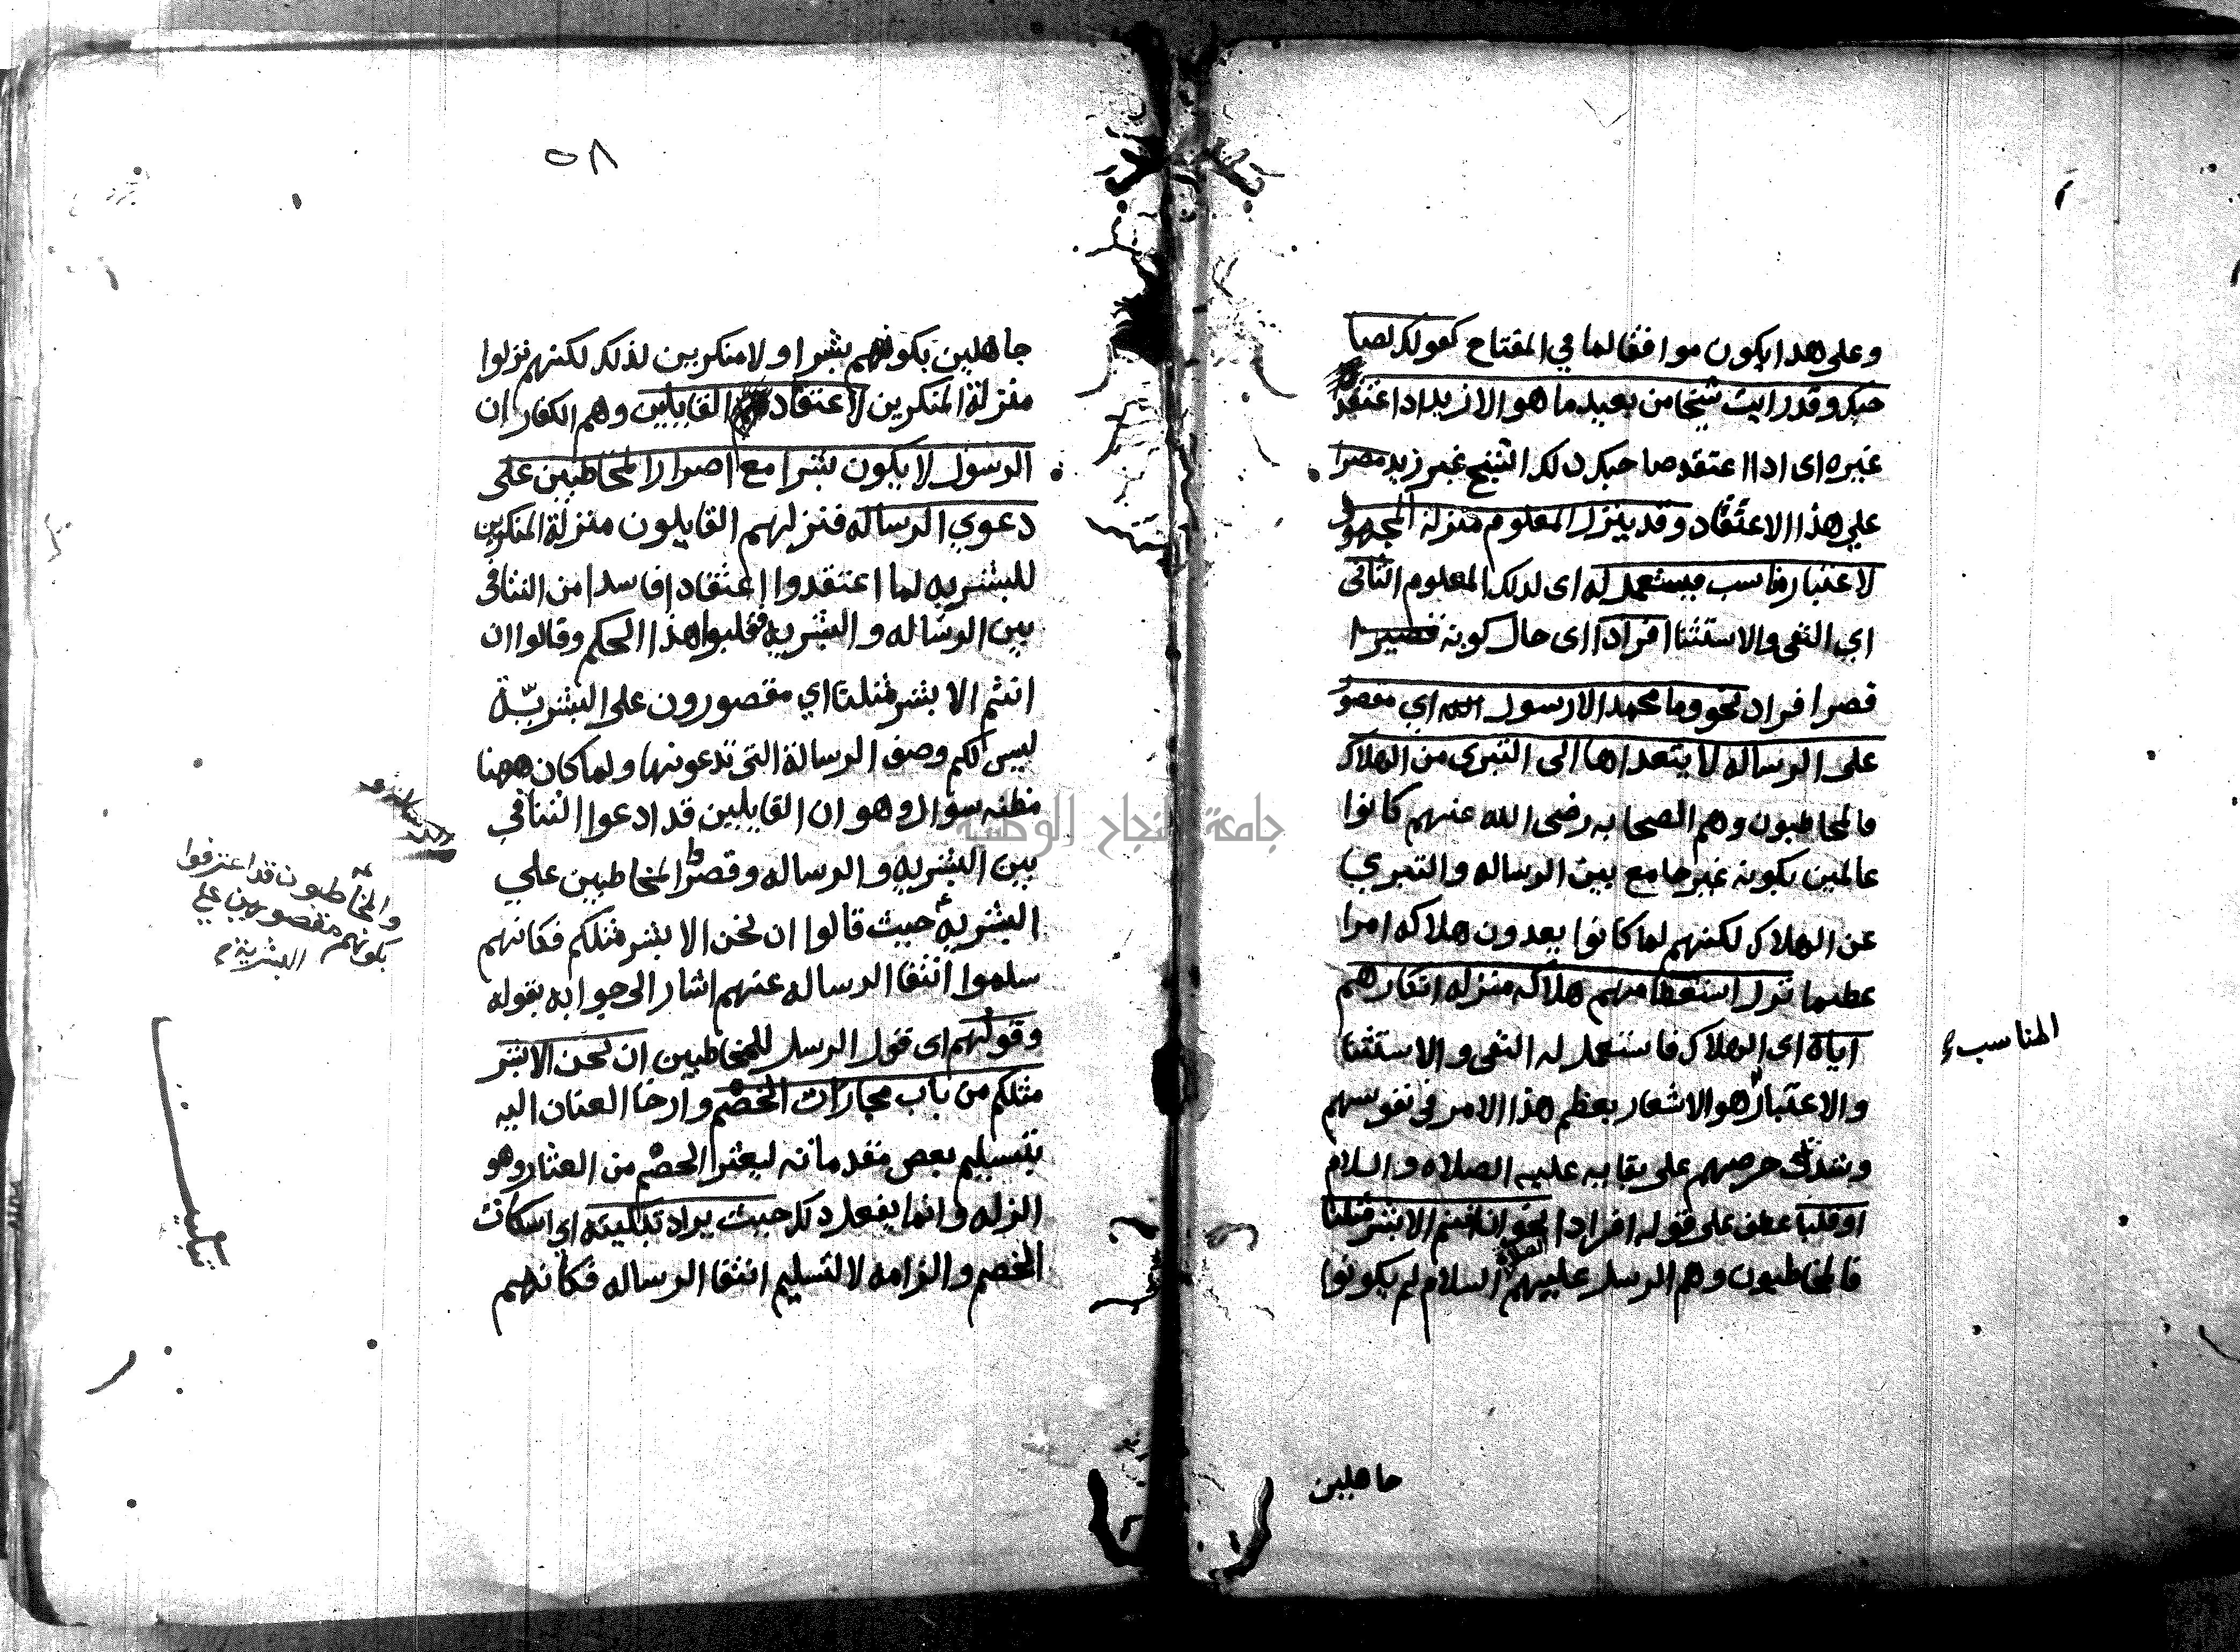 وعلى هدا يكون موافقا لما في المفتاح كقولك لصا
حبك وقد رايت شبحا من بعيد ما هو الا زيد ادا اعتقد
غيره اى ادا اعتقد صاحبك دلك الشبح غير زيد مصرا
علي هذا الاعتقاد وقد ينزل المعلوم منزلة المجهول
لاعتبار مناسب فيستعمل له اى لدلك المعلوم الثانى
اي النفى والاستثنا افرادا اى حال كونه قصيرا
قصر افراد نحو وما محمد الا رسول الله اي مقصور
على الرساله لا يتعداها الى التبرى من الهلاك
فالمخاطبون وهم الصحابه رضى الله عنهم كانوا
عالمين بكونه غير جامع بين الرساله والتبري
عن الهلاك لكنهم لما كانوا يعدون هلاكه امرا
عطيما نزل استعظامهم هلاكه منزله انكارهم
اياه اى الهلاك فاستعمل له النفى والاستثنا
والاعتبار هو الاشعار بعظم هذا الامر فى نفوسهم
المناسب
وشدة حرصهم على بقايه عليه الصلاه والسلام
او قلبا عطف على قوله افرادا نحو ان انتم الا بشر مثلنا
فالمخاطبون وهم الرسل عليهم الصلاة السلام لم يكونوا
جاهلين
٥٨
جاهلين بكونهم بشرا ولا منكرين لذلك لكنهم نزلوا
منزلة المنكرين لاعتقاد القايلين وهم الكفار ان
الرسول لا يكون بشرا مع اصرار المخاطبين على
دعوي الرساله فنزلهم القايلون منزلة المنكرين
للبشريه لما اعتقدوا اعتقادا فاسدا من التنافى
بين الرساله والبشريه فقلبوا هذا الحكم وقالوا ان
انتم الا بشر مثلنا اي مقصورون على البشريّة
ليس لكم وصف الرسالة التى تدعونها ولما كان ههنا
مظنه سؤال وهو ان القايلين قد ادعوا التنافي
بين البشريه والرساله وقصروا المخاطبين علي
والمخاطبون قد اعترفوا
بكونهم مقصورين علي
البشرية
البشريه حيث قالوا ان نحن الا بشر مثلكم فكانهم
سلموا انتفا الرساله عنهم اشار الى جوابه بقوله
وقولهم اى قول الرسل للمخاطبين ان نحن الا بشر
مثلكم من باب مجارات الخصم وارخا العنان اليه
بتسليم بعض مقدماته ليعثر الخصم من العثار وهو
الزله وانما يفعل دلك حيث يراد تبكيته اي اسكات
الخصم والزامه لا لتسليم انتفا الرساله فكانهم